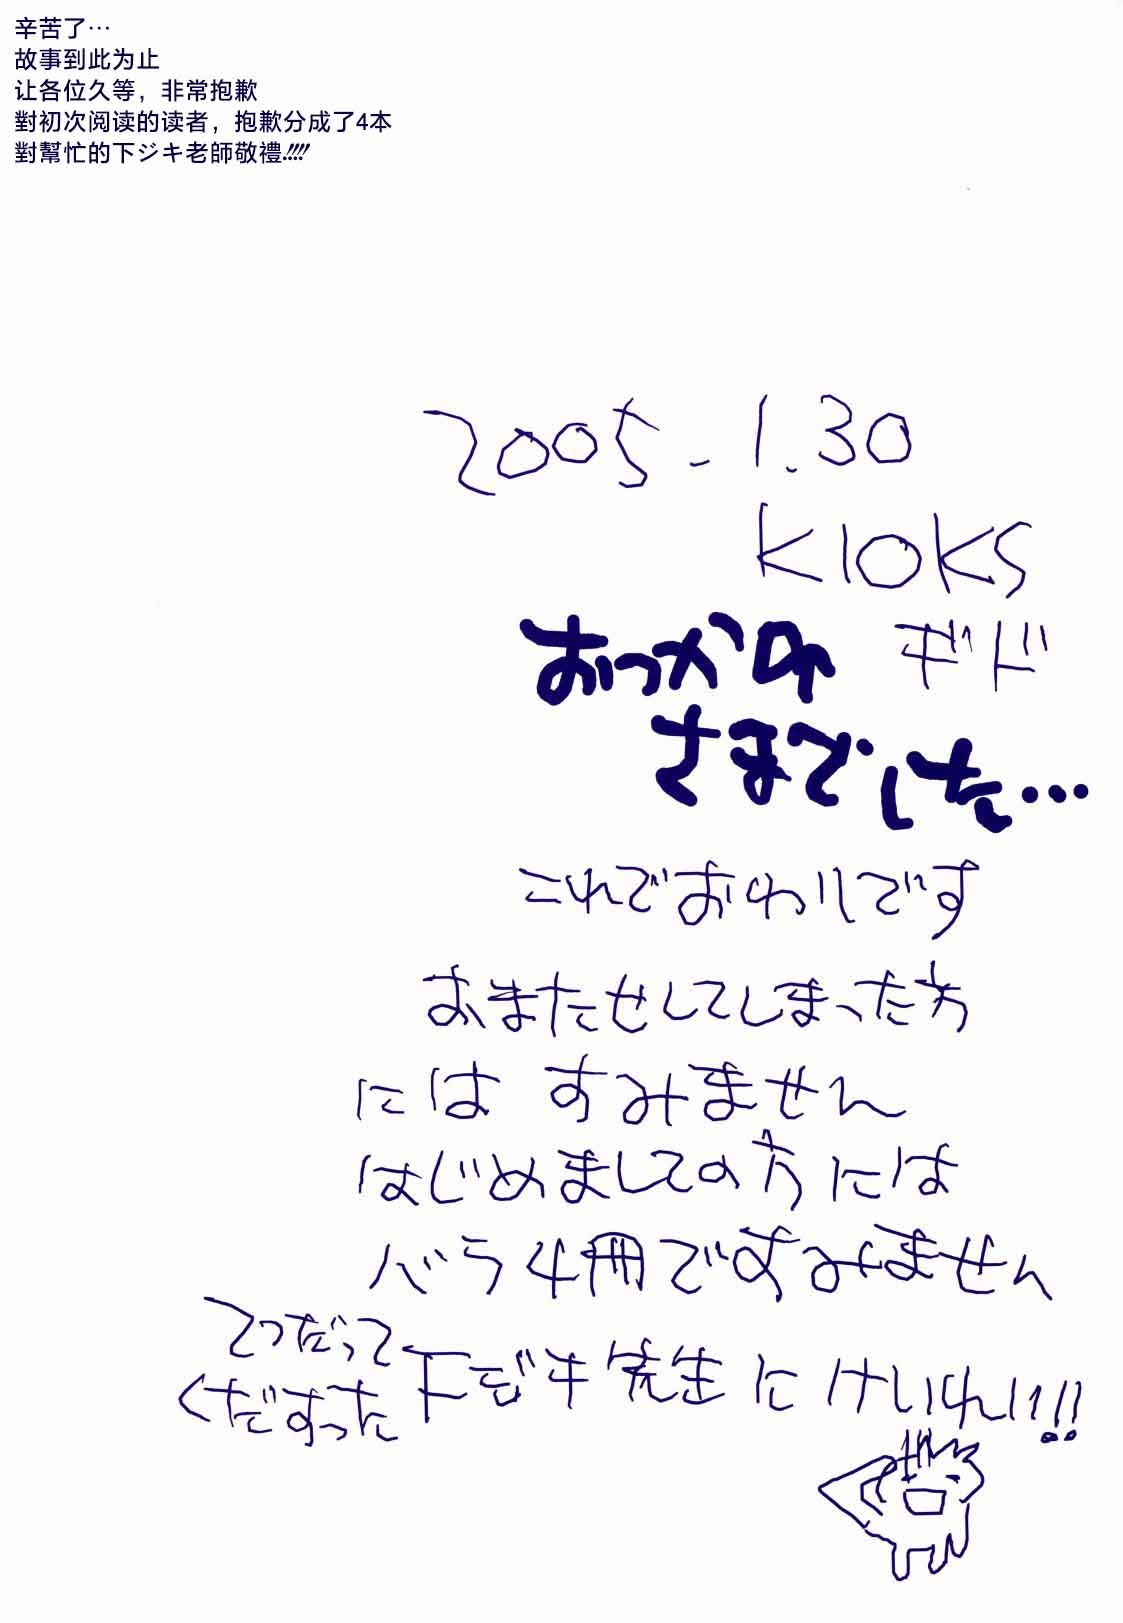 辛苦了…
故事到此为止
让各位久等，非常抱歉
對初次阅读的读者，抱歉分成了4本
對幫忙的下ジキ老師敬禮!!!!
2005-1.30
KIOKS
ギド
おつかれ
さまでした…
これでおわりです
おまたせしてしまった方
には すみません
はじめましての方には
バラ4冊ですみません
てつだって
くだすった
下ジキ先生にけいれい!!